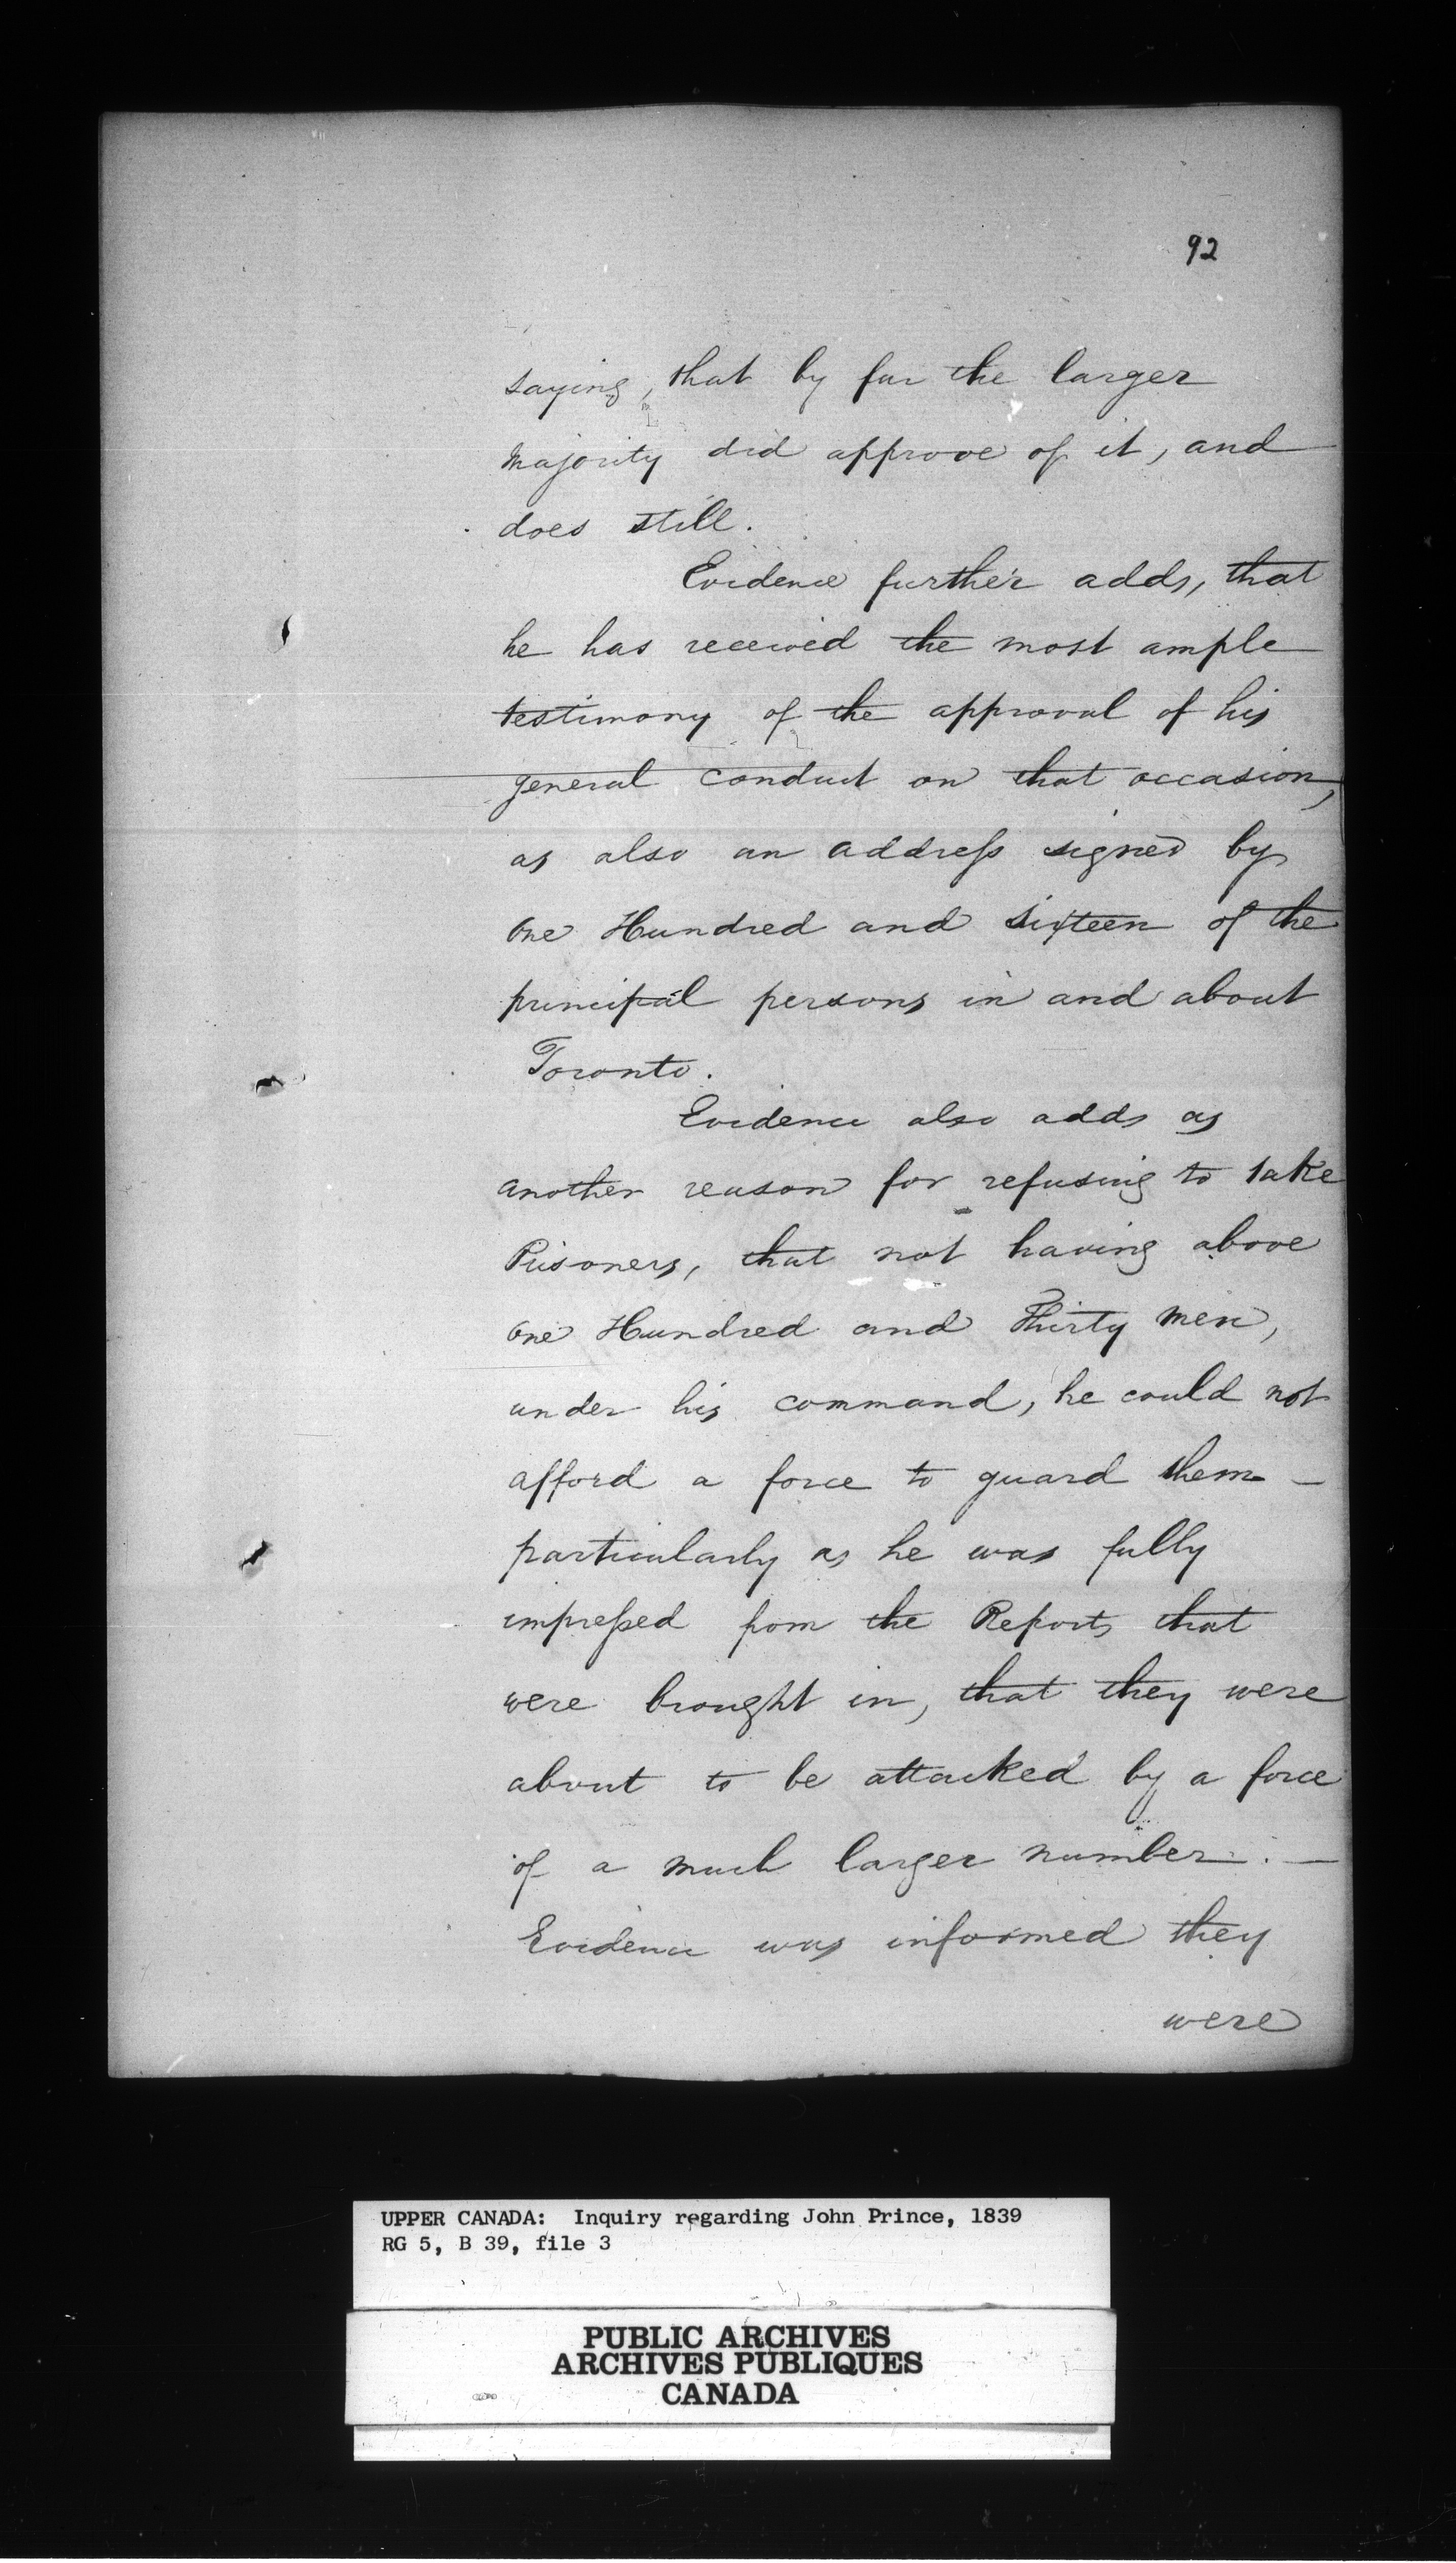 92
saying, that by far the larger
majority did approve of it, and
does still.
Evidence further adds, that
he has received the most ample
testimony of the approval of his
general conduct on that occasion,
as also an address signed by
one Hundred and sixteen of the
principal persons in and about
Toronto.
Evidence also adds as
another reason for refusing to take
Prisoners, that not having above
one Hundred and Thirty men,
under his command, he could not
afford a force to guard them —
particularly as he was fully
impressed from the Reports that
were brought in, that they were
about to be attacked by a force
of a much larger number. —
Evidence was informed they
were
UPPER CANADA: Inquiry regarding John Prince, 1839
RG 5, B 39, file 3
PUBLIC ARCHIVES
ARCHIVES PUBLIQUES
CANADA